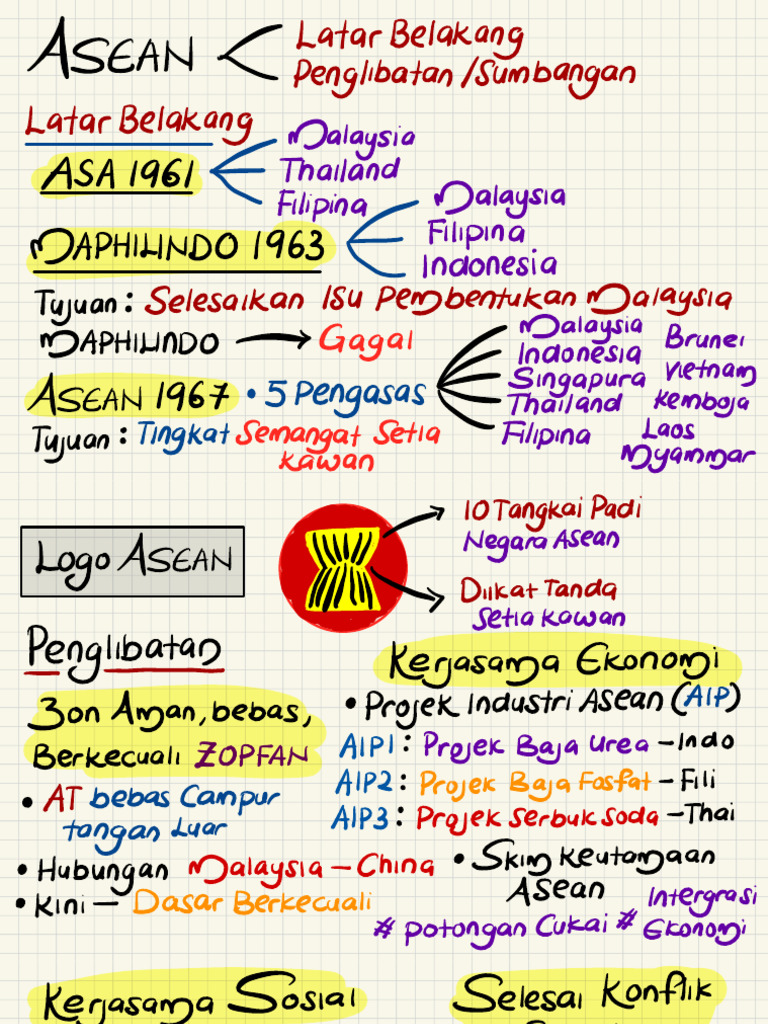 ASEAN
Latar Belakang
Penglibatan/Sumbangan
Latar Belakang
ASA 1961
Malaysia
Thailand
Filipina
MAPHILINDO 1963
Malaysia
Filipina
Indonesia
Tujuan: Selesaikan Isu Pembentukan Malaysia
MAPHILINDO → Gagal
ASEAN 1967 • 5 Pengasas
Malaysia
Indonesia
Singapura
Thailand
Filipina
Brunei
Vietnam
Kemboja
Laos
Myammar
Tujuan: Tingkat Semangat Setia
Kawan
Logo ASEAN
10 Tangkai Padi
Negara Asean
Diikat Tanda
Setia Kawan
Penglibatan
Zon Aman, bebas,
Berkecuali ZOPFAN
• AT bebas Campur
tangan Luar
• Hubungan Malaysia – China
• Kini – Dasar Berkecuali
Kerjasama Ekonomi
• Projek Industri Asean (AIP)
AIP1: Projek Baja Urea – Indo
AIP2: Projek Baja Fosfat – Fili
AIP3: Projek Serbuk Soda – Thai
• Skim Keutamaan
ASEAN
Intergrasi
Ekonomi
# Potongan Cukai #
Kerjasama Sosial
Selesai Konflik